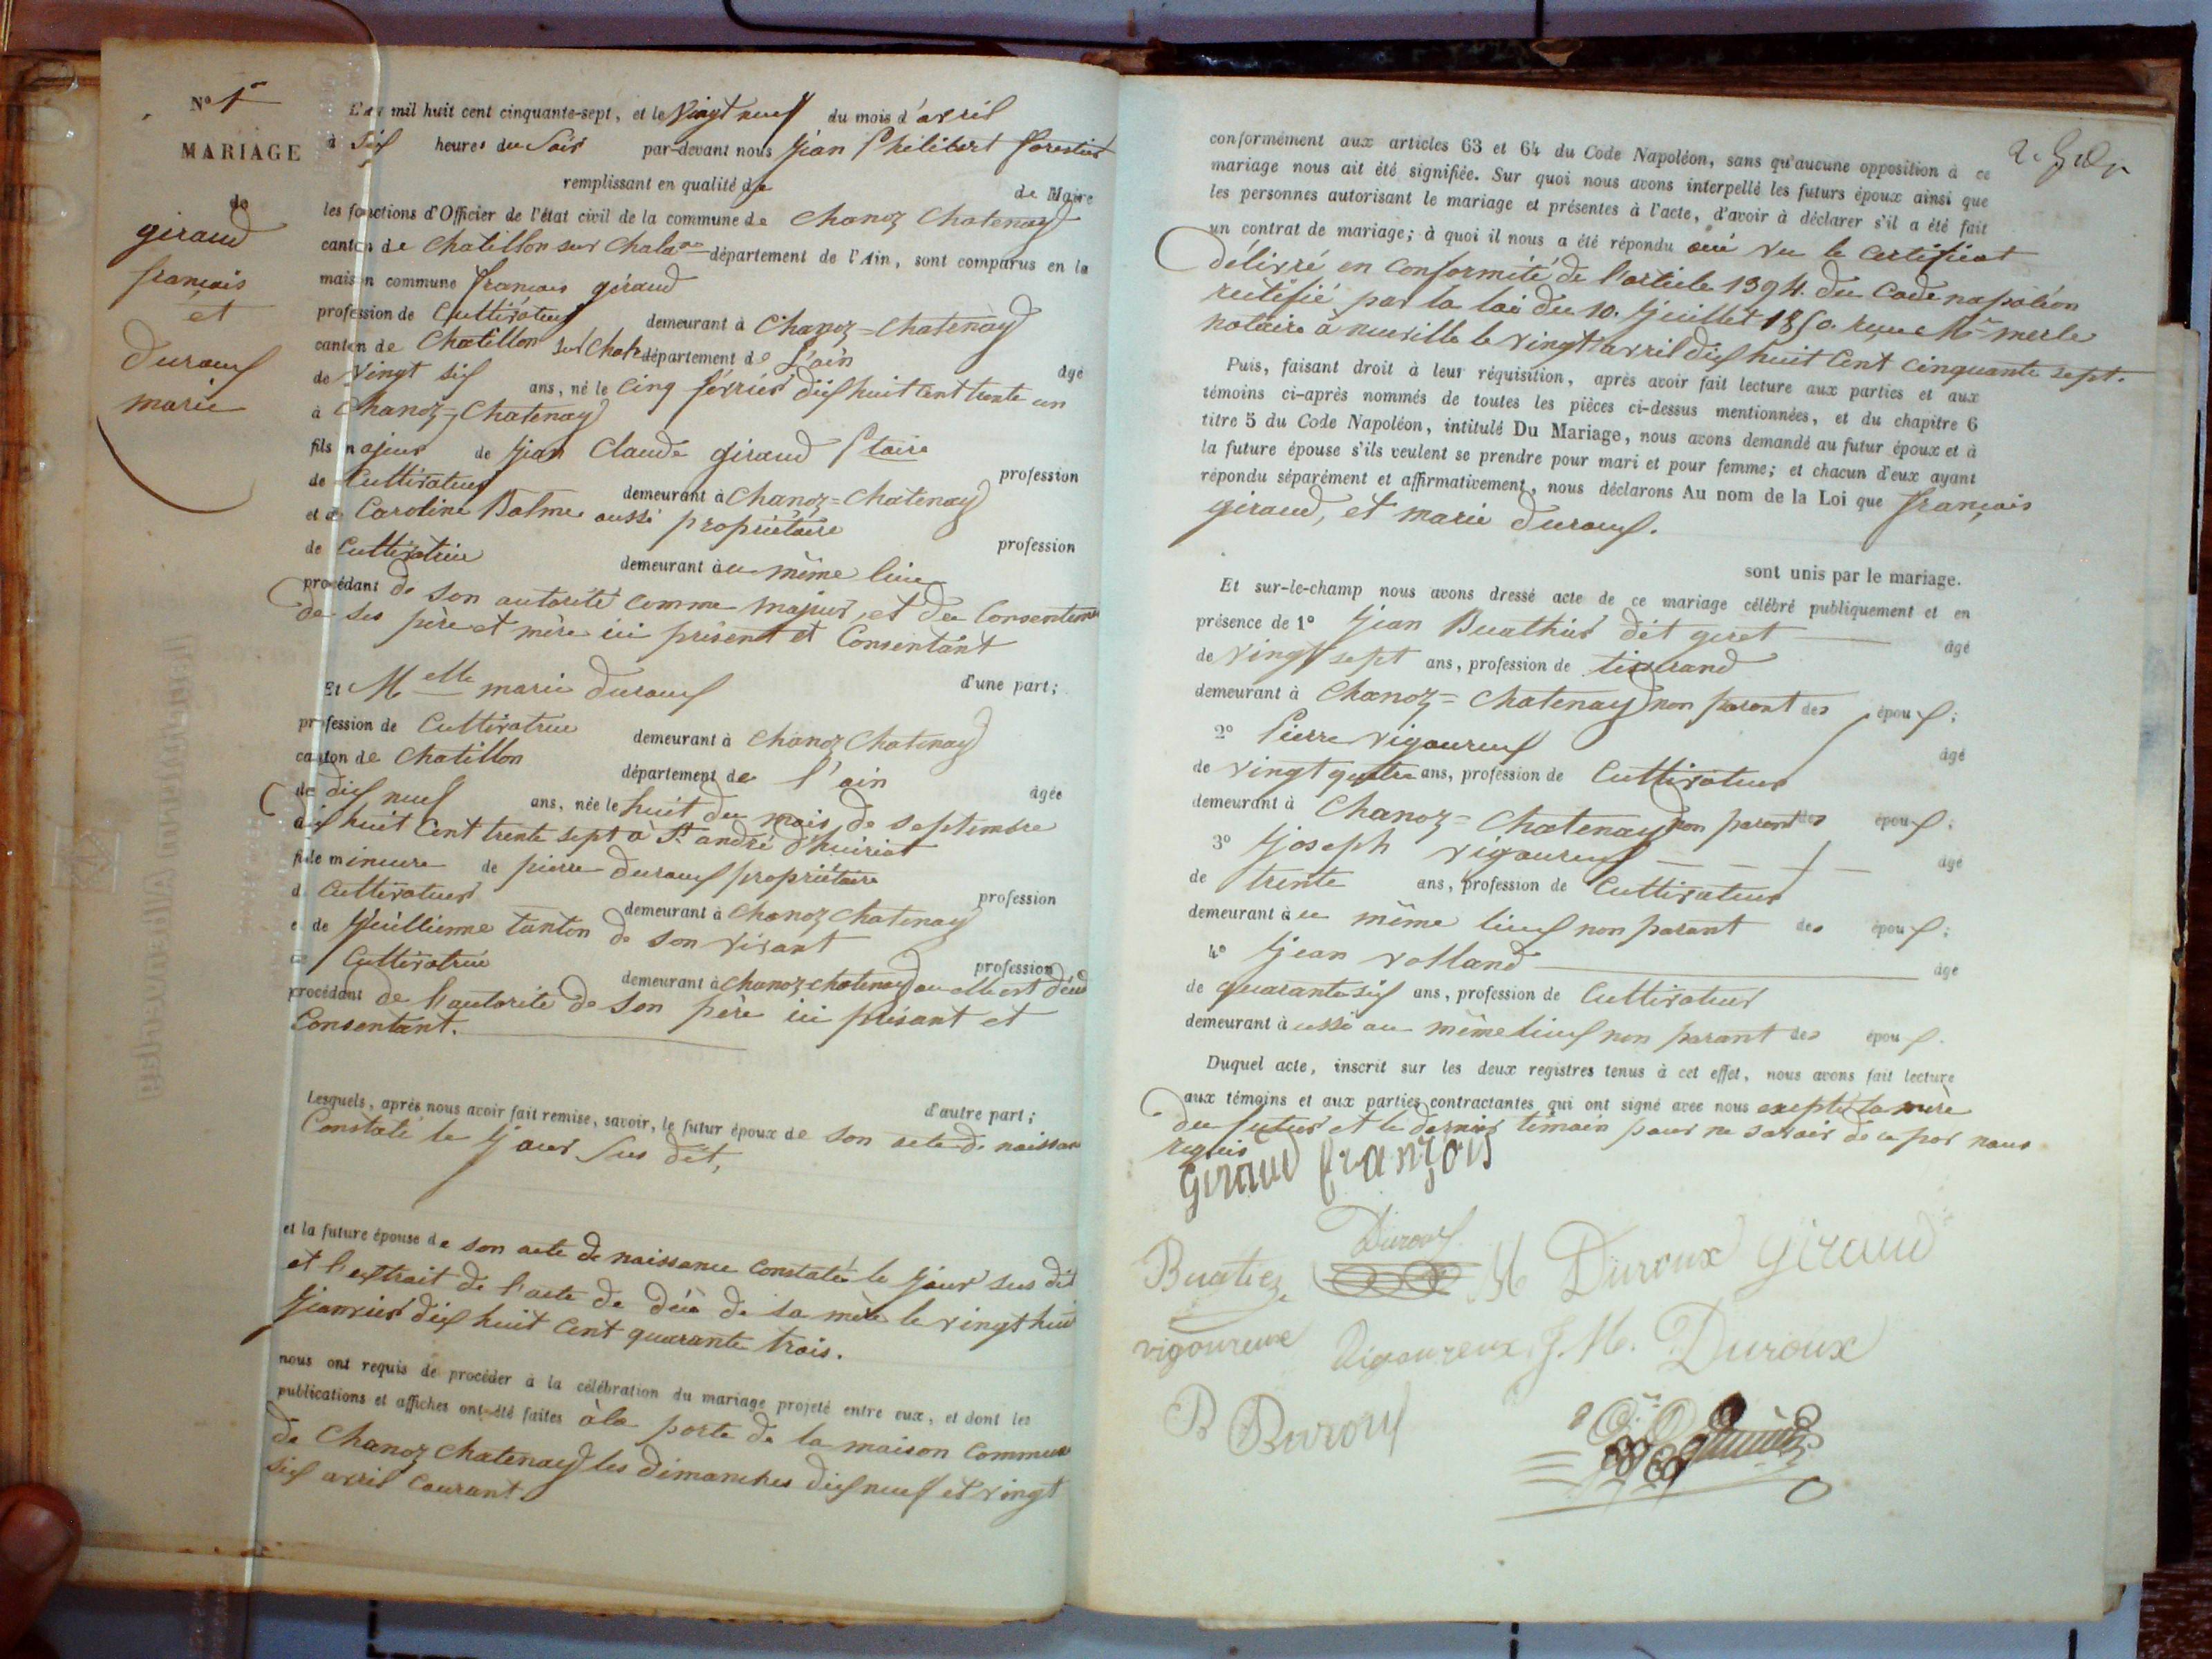 N° 1er
MARIAGE
de
giraud
francais
et
Duroux
marie
L'an mil huit cent cinquante-sept, et le vingt neuf du mois d'avril
à six heures du soir par-devant nous Jean Philibert forestier
remplissant en qualité de de Maire
les fonctions d'Officier de l'état civil de la commune de Chanoz Chatenay
canton de Chatillon sur Chala ne département de l'Ain, sont comparus en la
maison commune francois giraud
profession de Cultivateur demeurant à Chanoz=Chatenay
canton de Chatillon sur Chal. département de L'ain âgé
de vingt six ans, né le cinq février dix huit cent trente un
à Chanoz=Chatenay
fils majeur de Jean Claude giraud ptaire profession
de Cultivateur demeurant à Chanoz=Chatenay
et de Caroline Balme aussi propriétaire profession
de Cultivatrice demeurant à u même lieu
procédant de son autorité comme majeur, et du Consenteme
de ses père et mère ici présent et Consentant
d'une part;
Et Melle marie Duroux
profession de Cultivatrice demeurant à Chanoz Chatenay
canton de Chatillon département de l'ain âgée
de dix neuf ans, née le huit du mois de septembre
dix huit Cent trente sept à St andré d'huiriat
fille mineure de pierre Duroux propriétaire profession
de Cultivateur demeurant à Chanoz Chatenay
et de Guillienne tanton de son vivant profession
de Cultivatrice demeurant à Chanoz-chatenay ou elle est décd
procédant de l'autorité de son père ici présant et
Consentant.
d'autre part;
Lesquels, après nous avoir fait remise, savoir, le futur époux de son acte de naissan
Constaté le Jour sus dit,
et la future épouse de son acte de naissance Constatée le Jour sus dit
et l'extrait de l'acte de décè de sa mère le vingt huit
Janvier dix huit Cent quarante trois.
nous ont requis de procéder à la célébration du mariage projeté entre eux, et dont les
publications et affiches ont été faites à la porte de la maison Commune
de Chanoz Chatenay les dimanches dix neuf et vingt
six avril Courant
conformément aux articles 63 et 64 du Code Napoléon, sans qu'aucune opposition à ce
mariage nous ait été signifiée. Sur quoi nous avons interpellé les futurs époux ainsi que
les personnes autorisant le mariage et présentes à l'acte, d'avoir à déclarer s'il a été fait
un contrat de mariage; à quoi il nous a été répondu oui vu le Certificat
délivré en Conformité de l'article 1394. du Code napoléon
rectifié par la loi du 10. Juillet 1850. reçu Me merle
notaire à neuville le vingt avril dix huit Cent cinquante sept.
Puis, faisant droit à leur réquisition, après avoir fait lecture aux parties et aux
témoins ci-après nommés de toutes les pièces ci-dessus mentionnées, et du chapitre 6
titre 5 du Code Napoléon, intitulé Du Mariage, nous avons demandé au futur époux et à
la future épouse s'ils veulent se prendre pour mari et pour femme; et chacun d'eux ayant
répondu séparément et affirmativement, nous déclarons Au nom de la Loi que francois
giraud, et marie Duroux.
sont unis par le mariage.
Et sur-le-champ nous avons dressé acte de ce mariage célébré publiquement et en
présence de 1° Jean Buathier dit geret âgé
de vingt sept ans, profession de tisserand
demeurant à Chanoz=Chatenay non parant des époux;
2° Pierre vigoureux âgé
de vingt quatre ans, profession de Cultivateur
demeurant à Chanoz=Chatenay non parent des époux;
3° Joseph vigoureux âgé
de trente ans, profession de Cultivateur
demeurant à u même lieux non parant des époux;
4° Jean rolland âgé
de quarante six ans, profession de Cultivateur
demeurant à ussi au même lieux non parant des époux.
Duquel acte, inscrit sur les deux registres tenus à cet effet, nous avons fait lecture
aux témoins et aux parties contractantes qui ont signé avec nous excepté la mère
du futur et le dernier témoin pour ne savoir de ce par nous
requis
Giraud françois
Duroux
Buatiez M Duroux Giraud
vigoureux Vigoureux J. M. Duroux
P Duroux